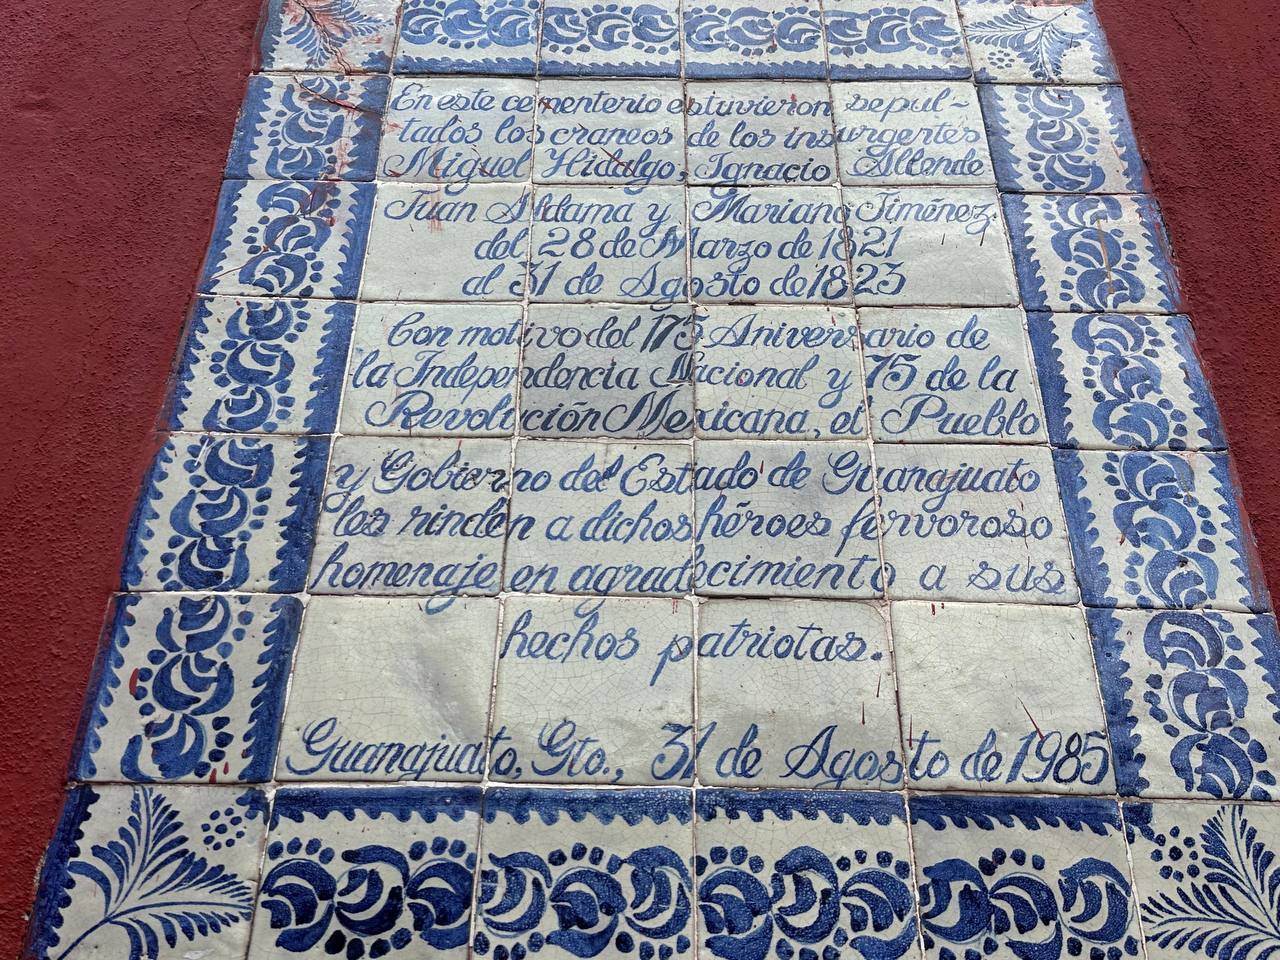 En este cementerio estuvieron sepul-
tados los craneos de los insurgentes
Miguel Hidalgo, Ignacio Allende
Juan Aldama y Mariano Jiménez
del 28 de Marzo de 1821
al 31 de Agosto de 1823
Con motivo del 175 Aniversario de
la Independencia Nacional y 75 de la
Revolución Mexicana, el Pueblo
y Gobierno del Estado de Guanajuato
les rinden a dichos héroes fervoroso
homenaje en agradecimiento a sus
hechos patriotas.
Guanajuato, Gto., 31 de Agosto de 1985